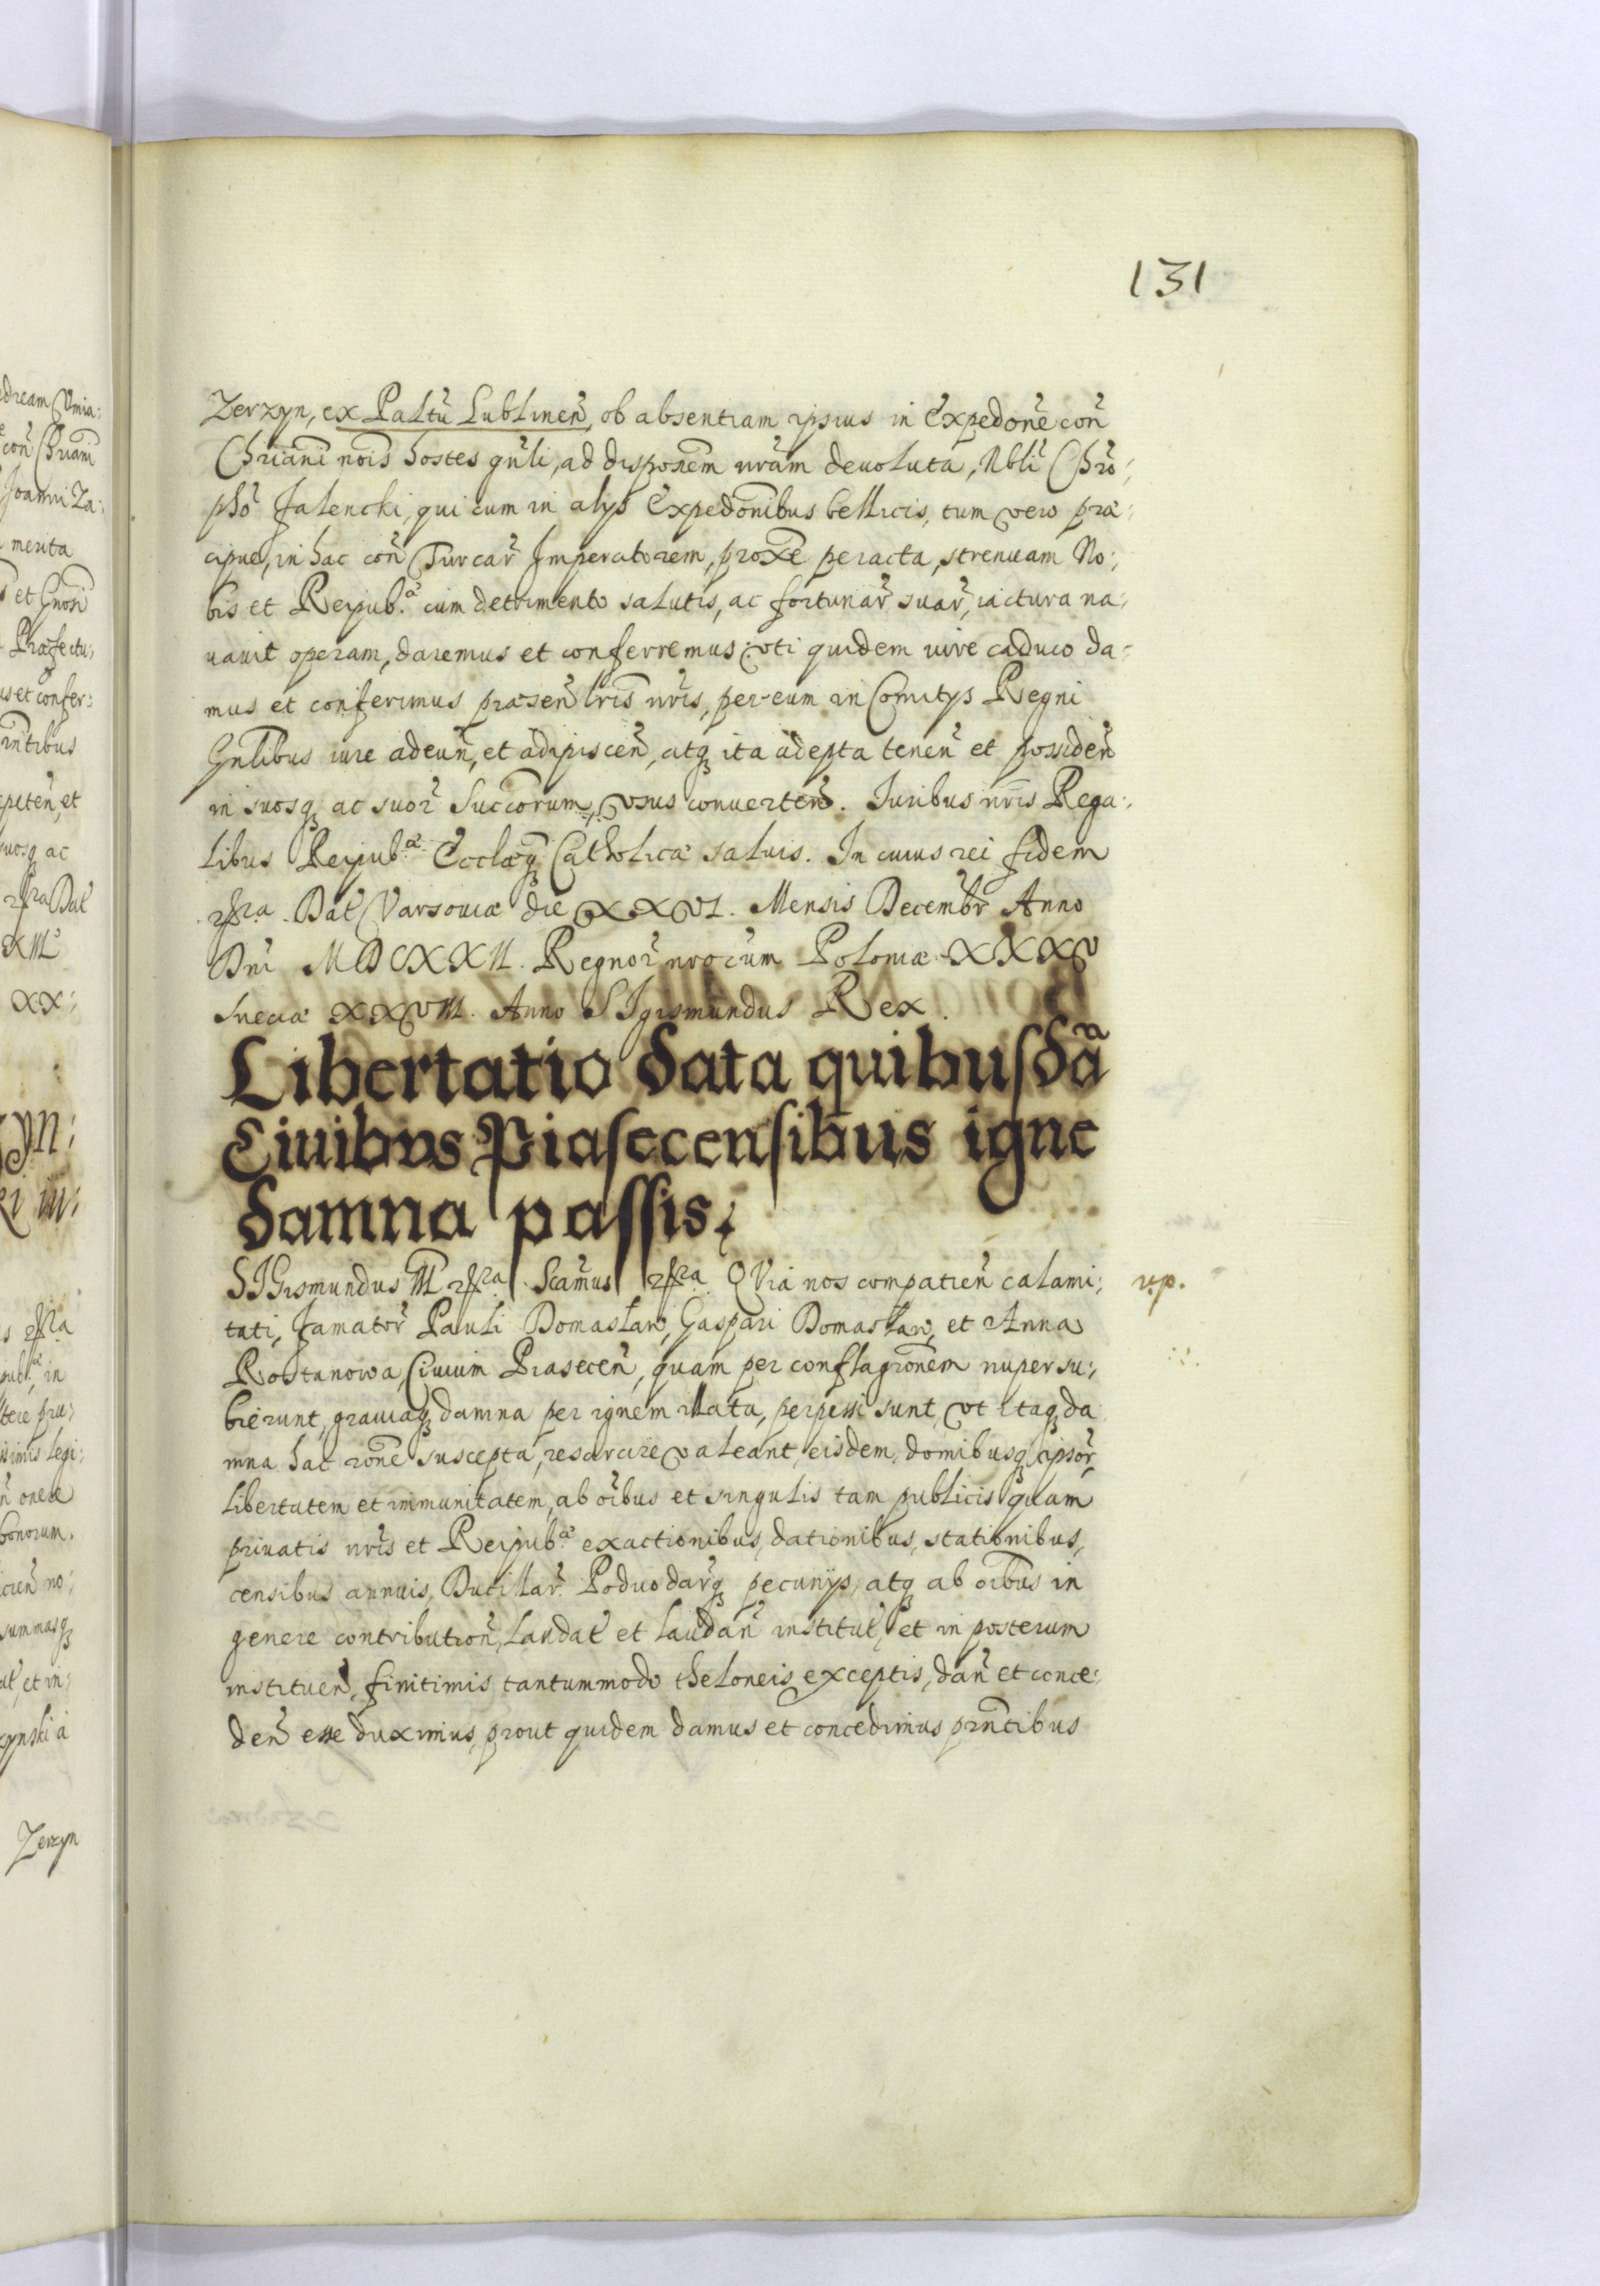 131
Zerzyn, ex Paltu Lublinen̄, ob absentiam ipsius in Expedone con̄
Chriani nois hostes gnli, ad disponem nram devoluta, Nbli Chro:
pho Jalencki, qui cum in alys Expedonibus bellicis, tum vero præ:
cipue, in hac con̄ Turcar̄ Imperatorem, proxe peracta, strenuam No:
bis et Reipub.æ cum detrimento salutis, ac fortunar̄ suar̄, iactura na:
uauit operam, daremus et conferremus vti quidem iure caduco da:
mus et conferimus præsen̄ lris nris, per eum in Comitys Regni
Gnlibus iure adeun̄, et adipiscen̄, atq ita adepta tenen̄ et possiden̄
in suosq ac suor̄ Succorum, vsus conuerten̄. Iuribus nris Rega:
libus Reipub.æ Ecclæq Catholicæ saluis. In cuius rei fidem
Dat Varsouiæ die XXVI. Mensis Decembr Anno
Dni MDCXXII. Regnor̄ nrocum Poloniæ XXXV
Sueciæ XXVIII. Anno SIgismundus Rex.
Libertatio data quibusdā
Ciuibus Piasecensibus igne
damna passis.
SIGismundus III Scamus QVia nos compatien̄ calami: vp.
tati, Famator̄ Pauli Domaslaw, Gaspari Domaslaw, et Anna
Rostanowa Ciuium Piasecen̄, quam per conflagronem nuper su:
bierunt, grauiaq damna per ignem illata, perpessi sunt, vt itaq da
mna hac rone suscepta, resarcire valeant, eisdem, domibusq ipsor̄
libertatem et immunitatem, ab oibus et singulis tam publicis quam
priuatis nris et Reipub.æ exactionibus, dationibus, stationibus,
censibus annuis, Ducillar̄ Poduodarq pecunijs, atq ab oibus in
genere contribution̄, laudat et laudan̄ institut, et in posterum
instituen̄, finitimis tantummodo theloneis exceptis, dan̄ et conce:
den̄ esse duximus, prout quidem damus et concedimus prntibus